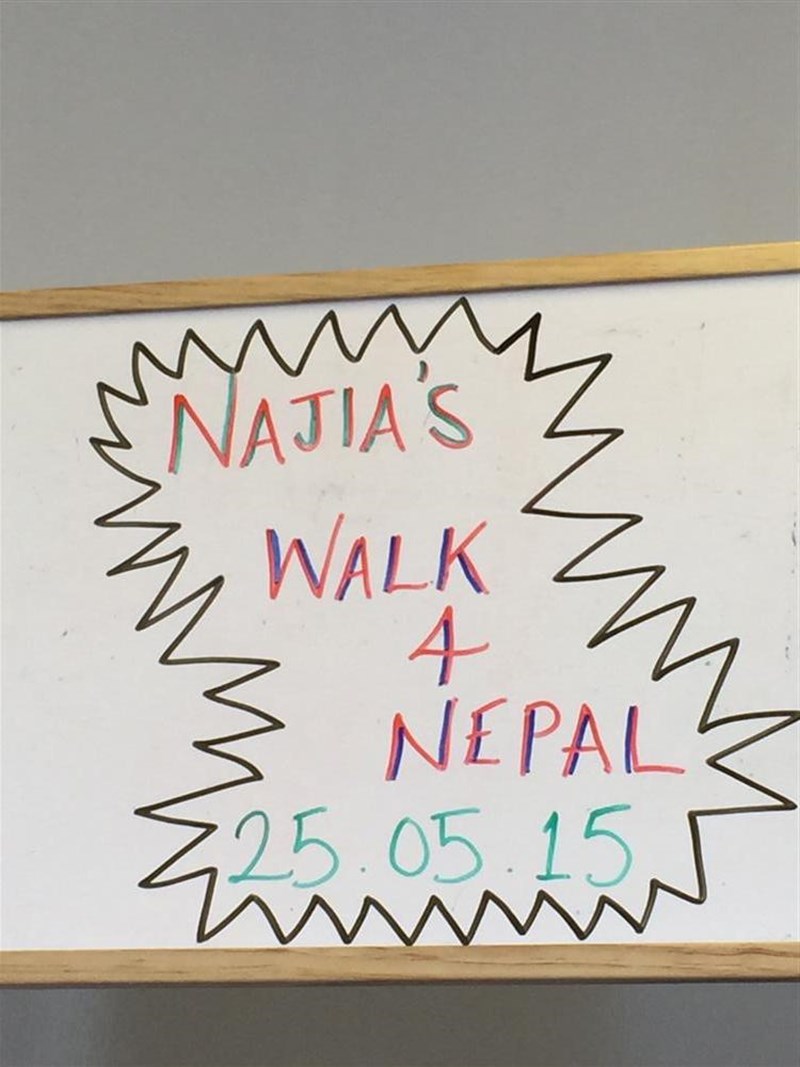 NAJIA'S
WALK
4
NEPAL
25.05.15